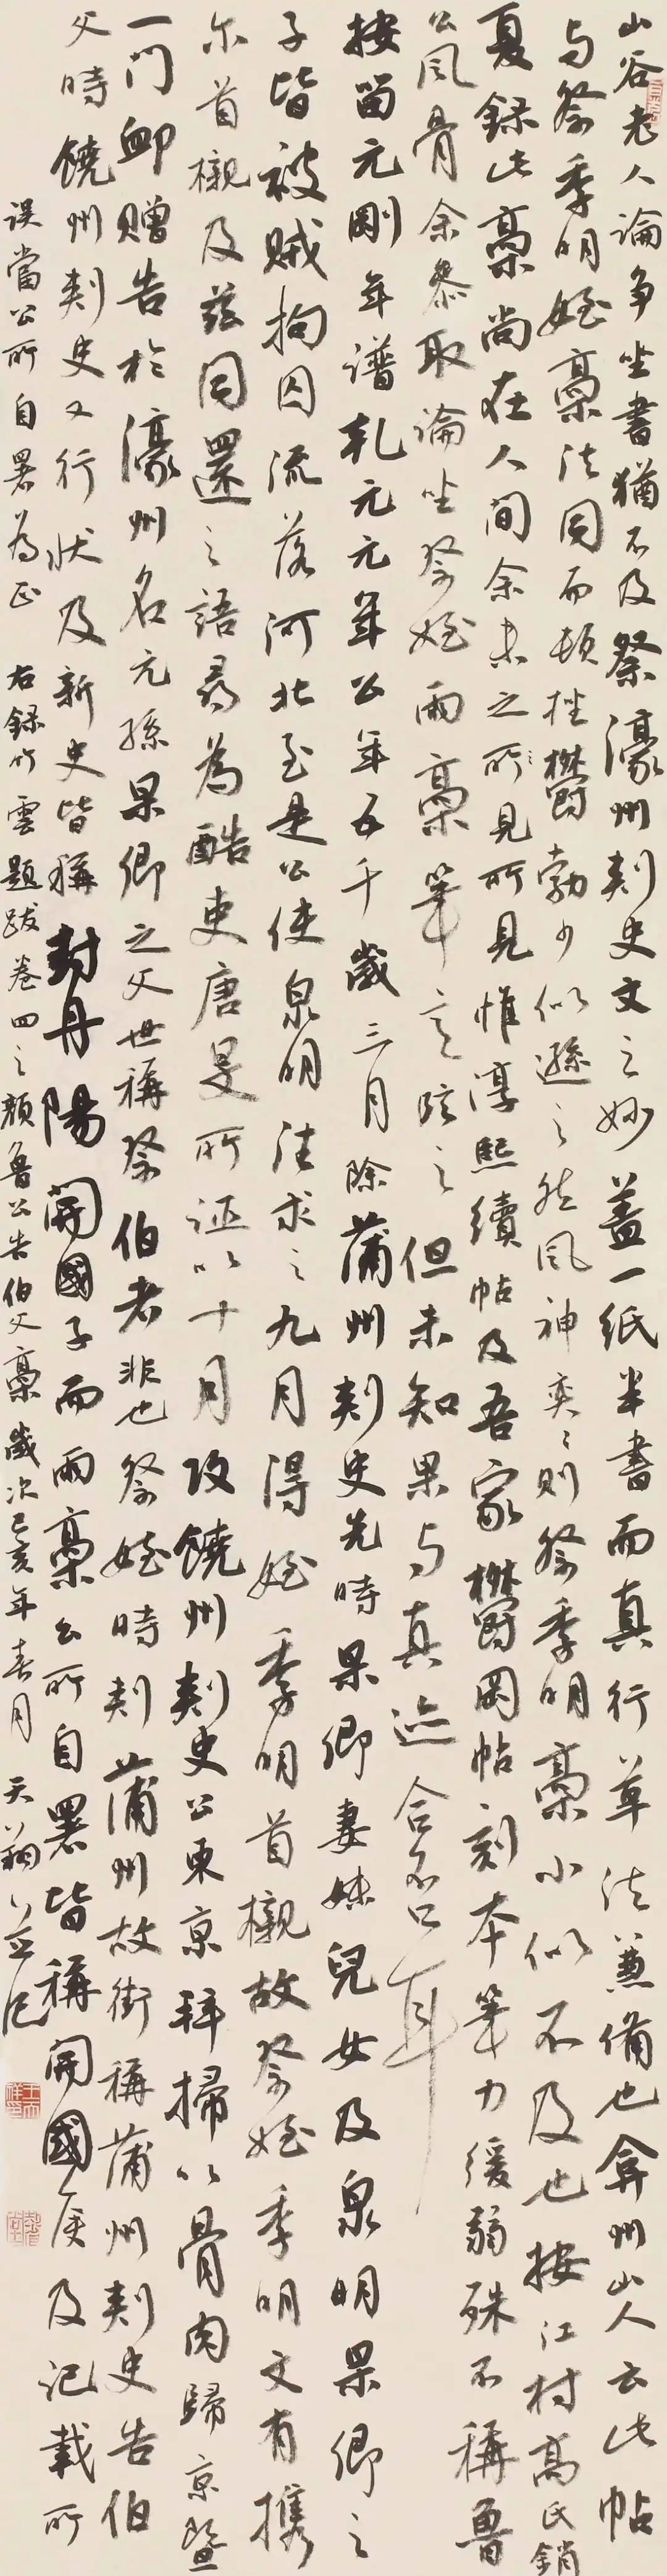 山谷老人論争坐書猶不及祭濠州刾史文之妙蓋一紙半書而真行草法兼備也弇州山人云此帖
与祭季明姪稾法同而頓挫欝勃少似遜之然風神奕〻則祭季明稾小似不及也按江村高氏銷
夏録此稾尚在人間余未之所見所見惟淳熙續帖及吾家欝岡帖刻本筆力緩弱殊不稱魯
公風骨余叅取論坐祭姪兩稾筆意臨之但未知果与真迹合否耳
按留元剛年譜乹元元年公年五十歲三月除蒲州刾史先時杲卿妻妹兒女及泉明杲卿之
子皆被賊拘囚流落河北至是公使泉明往求之九月得姪季明首櫬故祭姪季明文有携
尔首櫬及兹同還之語尋為酷吏唐旻所誣以十月改饒州刾史公東京拜掃以骨肉歸京暨
一门卹贈告於濠州名元孫杲卿之父世稱祭伯者非也祭姪時刾蒲州故銜稱蒲州刾史告伯
父時饒州刾史又行狀及新史皆稱封丹陽開國子而兩稾公所自署皆稱開國侯及记載所
误當公所自署為正 右録竹雲題跋卷四之顏魯公告伯父稾歲次己亥年春月天翔並记